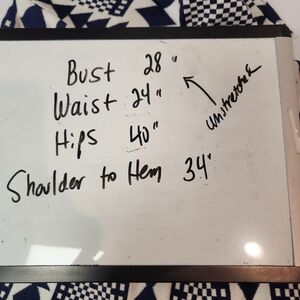 Bust 28"
Waist 24"
Hips 40"
Shoulder to Hem 34"
Unstretched